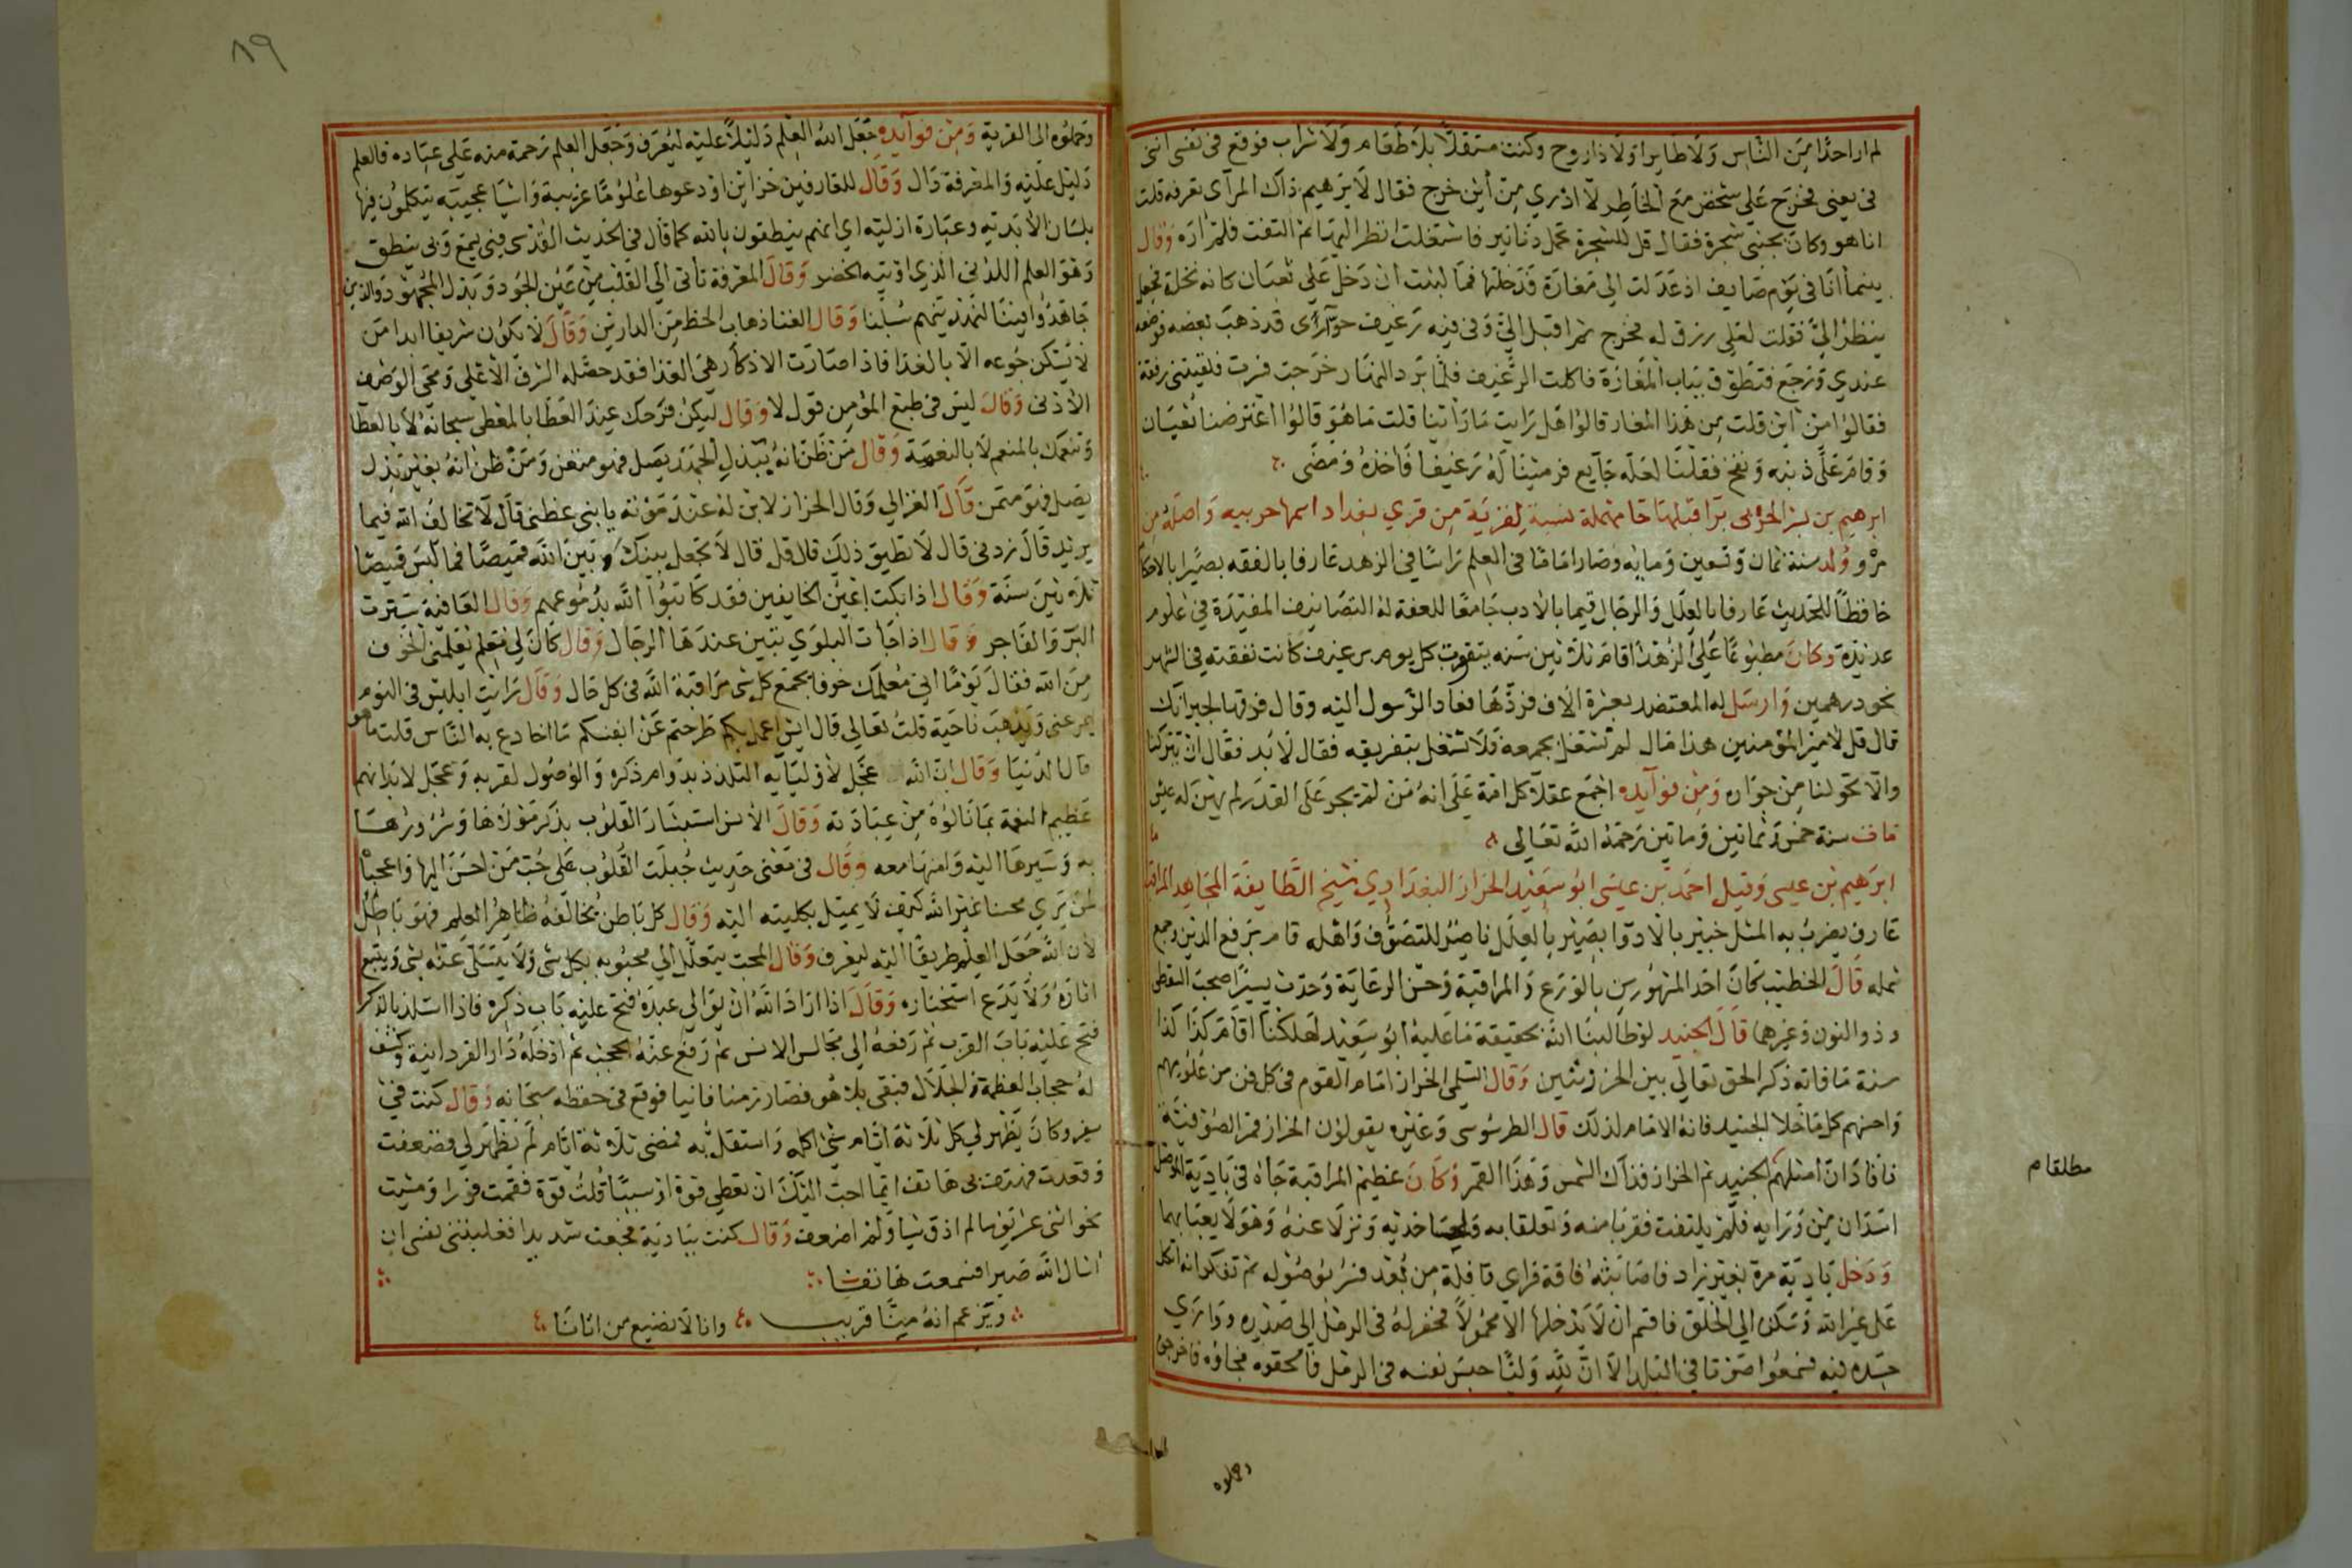 لم ار احدا من الناس ولا طايرا ولا ذا روح وكنت مستقلا بلا طعام ولا شراب فوقع في نفسي انني
في يعني فخرج علي شخص مع الخاطر لا ادري من أين خرج فقال لابرهيم ذاك المرآى تعرفه قلت
انا هو وكان بجنبي شجرة فقال قل للشجرة تحمل دنانير فاشتغلت انظر اليها ثم التفت فلم اره وقال
بينما أنا في يوم صايف اذ عدلت الى مغارة فدخلتها فما لبثت ان دخل علي ثعبان كانه نخلة فجعل
ينظر اليّ فقلت لعلي رزق له فخرج ثم اقبل اليّ وفي فيه رغيف حوآرى قد ذهب بعضه فوضعه
عندي ورجع فتطوق بباب المغارة فاكلت الرغيف فلما برد النهار خرجت فسرت فلقيتني رفقة
فقالوا من أين قلت من هذا المغار قالوا هل رايت ما راينا قلت ما هو قالوا اعترضنا ثعبان
وقام على ذنبه ونفخ فقلنا لعله جايع فرمينا له رغيفا فاخذه ومضى
ابرهيم بن الحربى برا قبلها حا مهملة نسبة لقرية من قري بغداد اسمها حربيه واصله من
مرو ولد سنة ثمان وتسعين ومايه وصار اماما في العلم راسا في الزهد عارفا بالفقه بصيرا بالاحكا
حافظا للحديث عارفا بالعلل والرجال قيما بالادب جامعا للعفة له التصانيف المفيدة في علوم
عديدة وكان مطبوعا على الزهد اقام ثلاثين سنه يتقوت كل يوم برغيف كانت نفقته في الشهر
نحو درهمين وارسل له المعتضد بعشرة الاف فردها فعاد الرسول اليه وقال فرقها لجيرانك
قال قل لامير المؤمنين هذا مال لم نشتغل بجمعه فلا نشتغل بتفريقه فقال لابد فقال ان تتركنا
والا تحولنا من جواره ومن فوآيده اجمع عقلاء كل امة على انه من لم يجر على القدر لم يتهن له عيش
مات سنة خمس وثمانين وماتين رحمه الله تعالى
ابرهيم بن عيسى وقيل احمد بن عيسى ابو سعيد الخراز البغدادي شيخ الطايفة المجاهد المراقب
عارف يضرب به المثل خبير بالادوا بصير بالعلل ناصر للتصوف واهله قام برفع الدين وجمع
شمله قال الخطيب كان احد المشهورين بالورع والمراقبة وحسن الرعاية وحدث يسيرا صحب السقطي
وذو النون وغيرهما قال الجنيد لو طالبنا الله بحقيقة ما عليه ابو سعيد لهلكنا اقام كذا كذا
سنة ما فاته ذكر الحق تعالى بين الخرزتين وقال السلمى الخراز امام القوم في كل فن من علومهم
واحسنهم كل ما خلا الجنيد فانه الامام لذلك قال الطرسوسى وغيره يقولون الخراز قمر الصوفية
فافاد ان امثلهم الجنيد ثم الخراز فذاك الشمس وهذا القمر وكان عظيم المراقبة جآه في بادية الموصل
اسدان من ورايه فلم يلتفت فقربا منه وتعلقا به ولحسا خديه ونزلا عنه وهو لا يعبا بهما
ودخل بادية مرة بغير زاد فاصابته فاقة فراى قافلة من بعد فسر بوصوله ثم تفكر انه اتكل
على غير الله وسكن الي الخلق فاقسم ان لا يدخلها الا محمولا فحفر له في الرمل الى صدره ووارى
جسده فيه فسمعوا صوتا في البلد الا ان لله وليا حبس نفسه في الرمل فالحقوه فجاؤه فاخرجوه
وحملوه
مطلقام
٨٩
وحملوه الى القرية ومن فوآيده جعل الله العلم دليلا عليه ليعرف وجعل العلم رحمة منه على عباده فالعلم
دليل عليه والمعرفة دال وقال للعارفين خزاين اودعوها علوما غريبة واشيا عجيبه يتكلمون فيها
بلسان الأبدية وعبارة ازلية اي انهم ينطقون بالله كما قال في الحديث القدسي فبي يسمع وبي ينطق
وهو العلم اللدنى الذي اوتيه الخضر وقال المعرفة تاتى الى القلب من عين الجود وبذل المجهود والذين
جاهدوا فينا لنهدينهم سبلنا وقال الفنا ذهاب الحظ من الدارين وقال لا يكون شريفا ابدا من
لا يسكن جوعه الا بالغذا فاذا صارت الاذكار هي الغذا فقد حصله الشرف الاعلى ومحى الوصف
الأدنى وقال ليس في طبع المؤمن قول لا وقال ليكن فرحك عند العطا بالمعطي سبحانه لا بالعطا
وتنعمك بالمنعم لا بالنعمة وقال من ظن انه يبذل الجهد يصل فهو متعن ومن ظن انه بغير بذل
يصل فهو متمن قال الغزالي وقال الخراز لابن له عند موته يا بني عظني قال لا تخالف الله فيما
يريد قال زدني قال لا تطيق ذلك قال قل قال لا تجعل بينك وبين الله قميصا فما لبس قميصا
ثلاثين سنة وقال اذا بكت اعين الخايفين فقد كاتبوا الله بدموعهم وقال العافية سترت
البر والفاجر وقال اذا جآت البلوي يتبين عندها الرجال وقال كان لي معلم يعلمني الخوف
من الله فقال يوما اني معلمك خوفا يجمع كل شى مراقبة الله في كل حال وقال رايت ابليس في النوم
يمر عني ويذهب ناحية قلت تعالى قال ايش اعمل بكم طرحتم عن انفسكم ما اخادع به الناس قلت ما هو
قال الدنيا وقال ان الله عجل لاوليايه التلذذ بدوام ذكره والوصول لقربه وعجل لابدانهم
عظيم النعمة بما نالوه من عبادته وقال الانس استبشار القلوب بذكر مولاها وسرورها
به وسيرها اليه وامنها معه وقال في معنى حديث جبلت القلوب على حب من احسن اليها واعجبا
لمن يري محسنا غير الله كيف لا يميل بكليته اليه وقال كل باطن يخالفه ظاهر العلم فهو باطل
لان الله جعل العلم طريقا اليه ليعرف وقال المحب يتعلل الي محبوبه بكل شى ولا يتسلى عنه بشى ويتبع
اثاره ولا يدع استخباره وقال اذا اراد الله ان يوالي عبده فتح عليه باب ذكره فاذا استلذ بالذكر
فتح عليه باب القرب ثم رفعه الى مجالس الانس ثم رفع عنه الحجب ثم ادخله دار الفردانية وكشف
له حجاب العظمة والجلال فبقى بلا هو فصار زمنا فانيا فوقع في حفظه سبحانه وقال كنت في
سفر وكان يظهر لي كل ثلاثة ايام شي اكله واستقل به فمضى ثلاثة ايام لم يظهر لي فضعفت
وقعدت فهتف بي هاتف ايما احب اليك ان تعطي قوة او سببا قلت قوة فقمت فورا ومشيت
نحو اثني عشر يوما لم اذق شيا ولم اضعف وقال كنت ببادية فجعت شديدا فغلبتني نفسى ان
اسال الله صبرا فسمعت هاتفا
ويزعم انه منا قريب وانا لا نضيع من اتانا